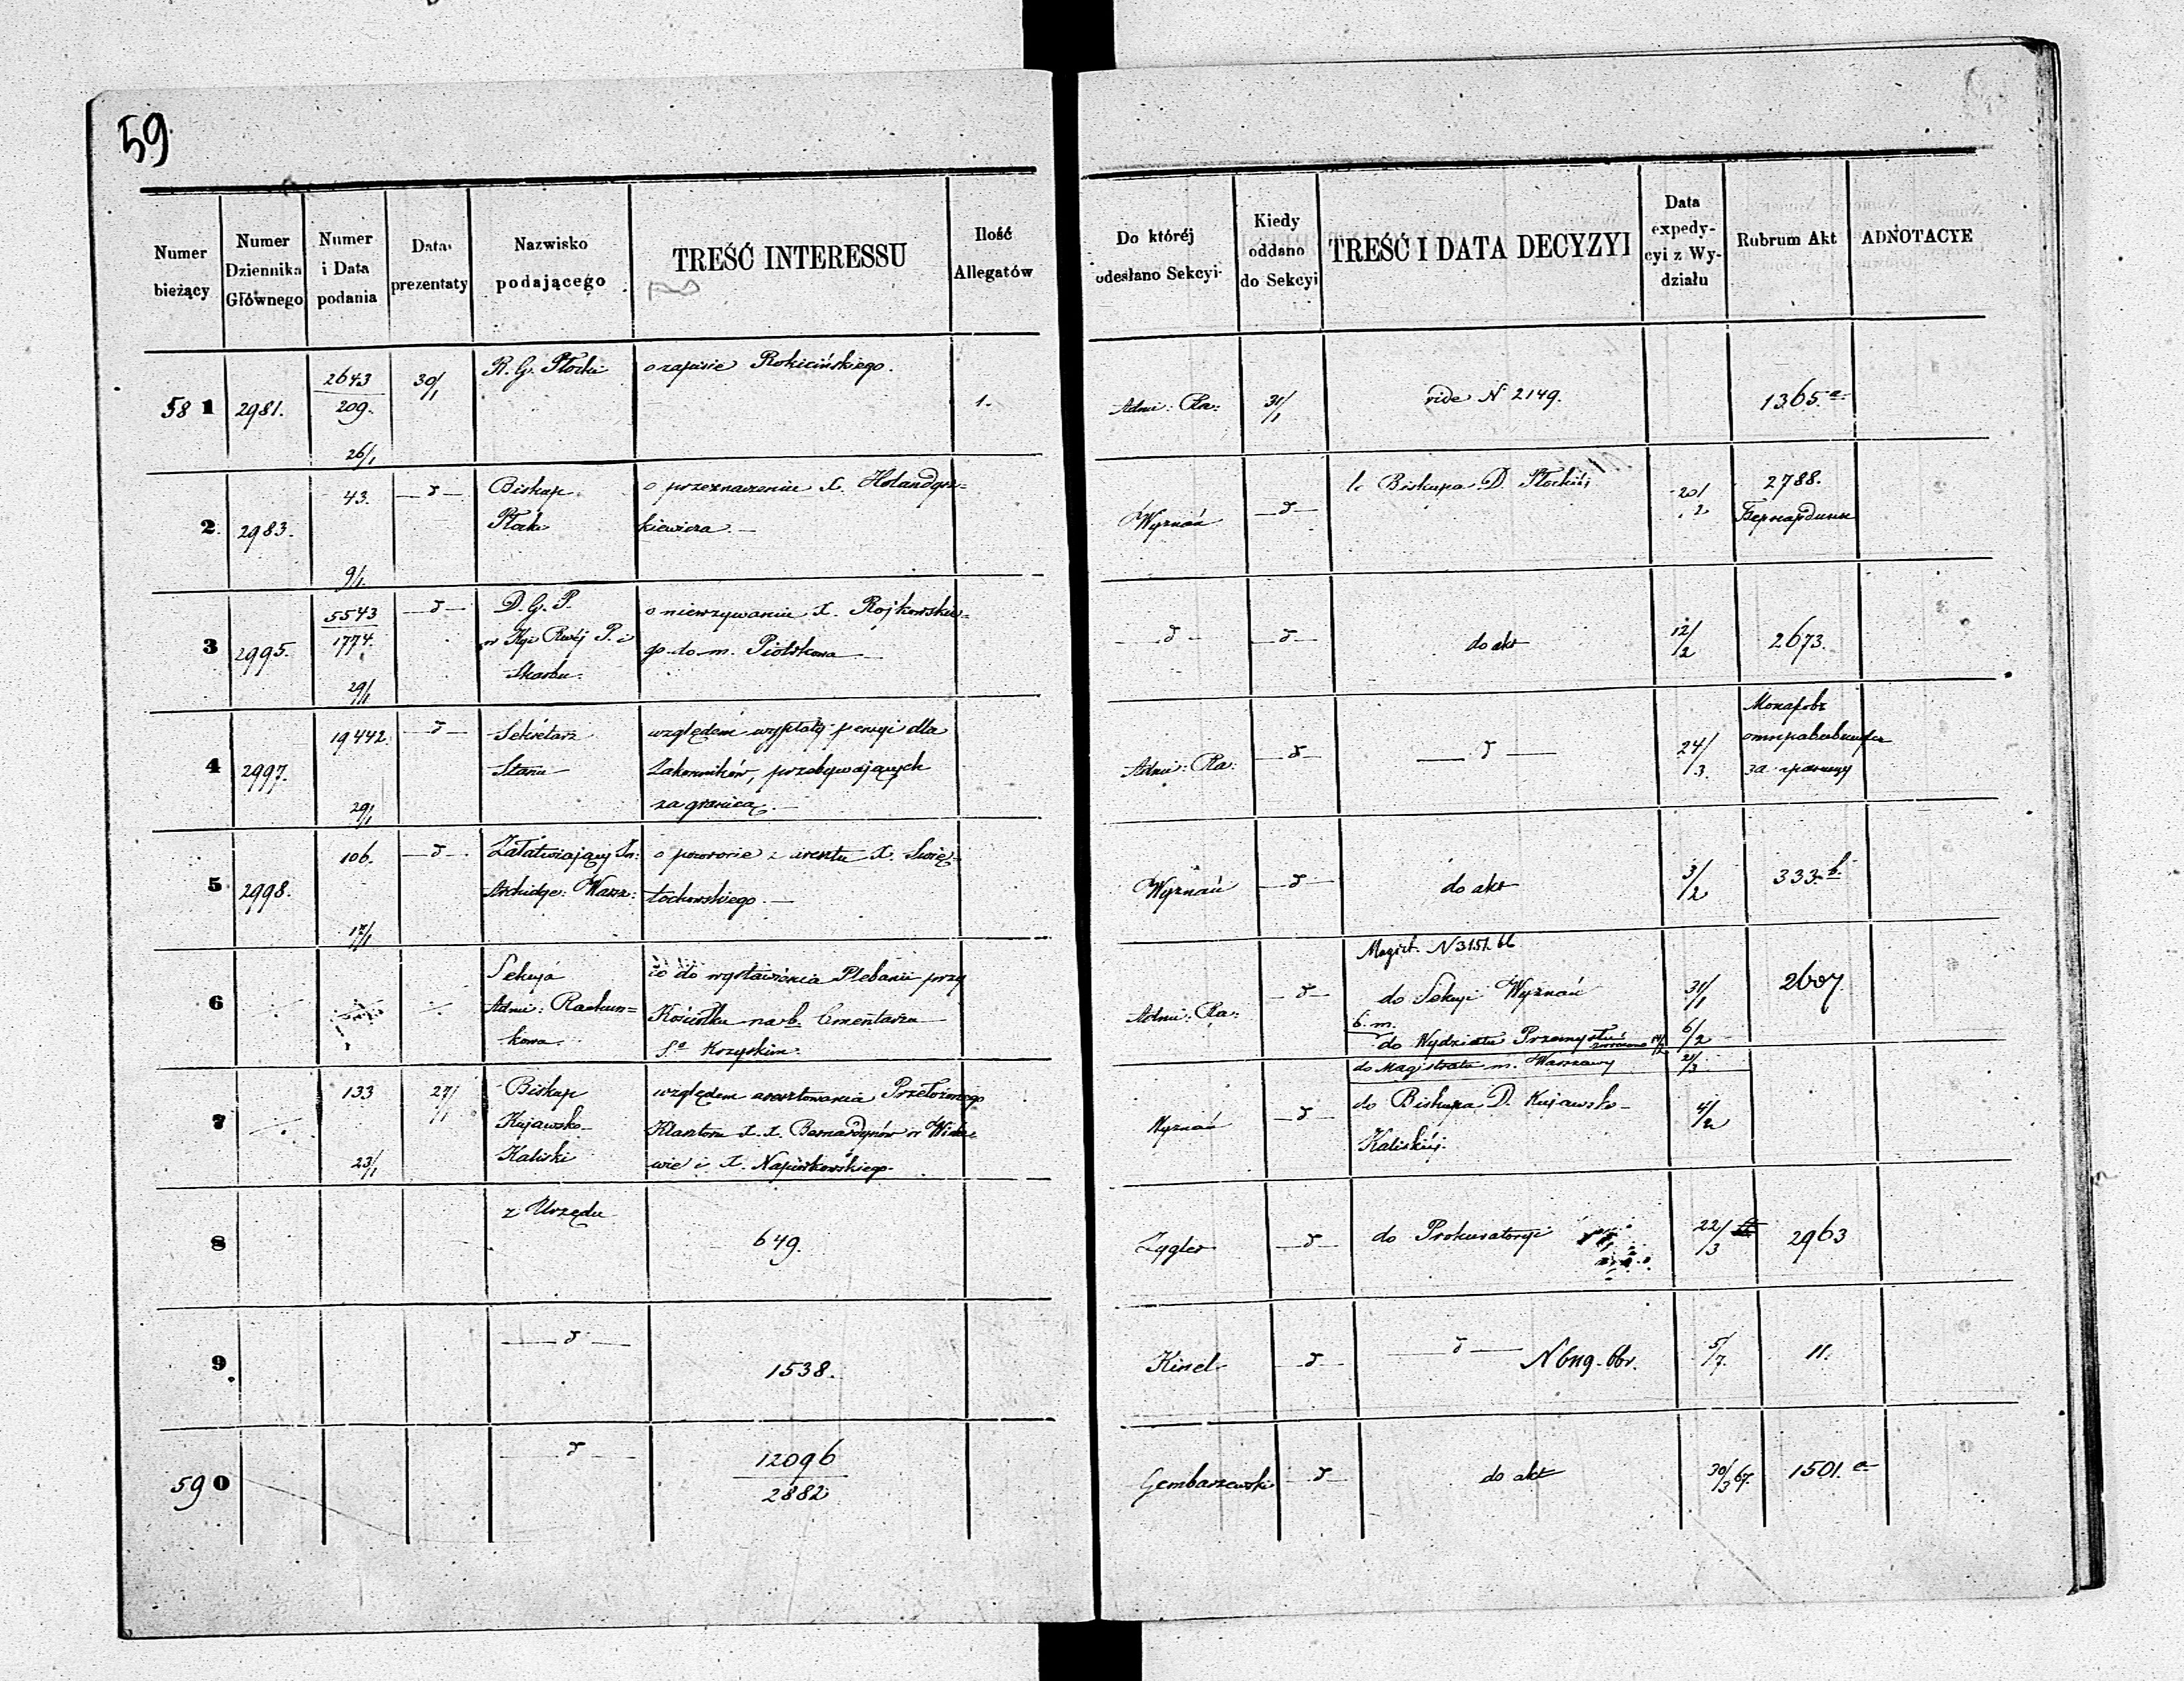 59
Numer bieżący
Numer Dziennika Głównego
Numer i Data podania
Data prezentaty
Nazwisko podającego
TREŚĆ INTERESSU
Ilość Allegatów
Do któréj odesłano Sekcyi
Kiedy oddano do Sekcyi
TREŚĆ I DATA DECYZYI
Data expedycyi z Wydziału
Rubrum Akt
ADNOTACYE
581 2981. 2643 209. 26/1 30/1 R. G. Płocki o zapisie Rokicińskiego. 1. Admi: Ra: 31/1 vide N 2149. 1365.a
2. 2983. 43. 9/1. — d — Biskup
Płocki
o przeznaczeniu X.
kiewicza. —
Wyznań — d — Biskupa D. Płockiéj 20/2 2788.
Бернардины
3 2995. 5543 1774. 29/1 — d — D. G. P.
w Kr. P. i
Skarbu.
o X. Rojkowskie=
go do m. Piotrkowa —
— d — — d — do akt 12/2 2673.
4 2997. 19442. 29/1 — d — Sekretarz
Stanu
względem wypłaty pensyi dla
Zakonników, przebywających
za granicą. —
Admi: Ra: — d — — d — 24/3.
за границу
5 2998. 106. 17/1 — d — Załatwiający In:
Archidye: Warsz:
o powrocie z aresztu X. Świę=
tochowskiego. —
Wyznań — d — do akt 3/2 333.b.
6 Sekcya
Admi: Rachun=
kowa.
co do wystawienia Plebanii przy
Kościołku na b. Cmentarzu
S-o Krzyskim.
Admi: Ra: — d — Magist. N 3151. 66
do Sekcyi Wyznań 31/1
b. m.
do Wydziału Przemysłu 6/2
do Magistratu m. Warszawy 21/3
2607.
7 133 23/1 27/1 Biskup
Kujawsko-
Kaliski
względem aresztowania Przełożonego
Klasztoru X. X. Bernardynów w Wida=
wie i X. Napiórkowskiego.
Wyznań — d — do Biskupa D. Kujawsko-
Kaliskiéj.
4/2
8 z Urzędu 649. Zygler — d — do Prokuratoryi 22/3 2963
9. — d — 1538. Kinel — d — — d — 5/7. 11.
590 — d — 12096 2882 Gembarzewski — d — do akt 30/3 67. 1501.a